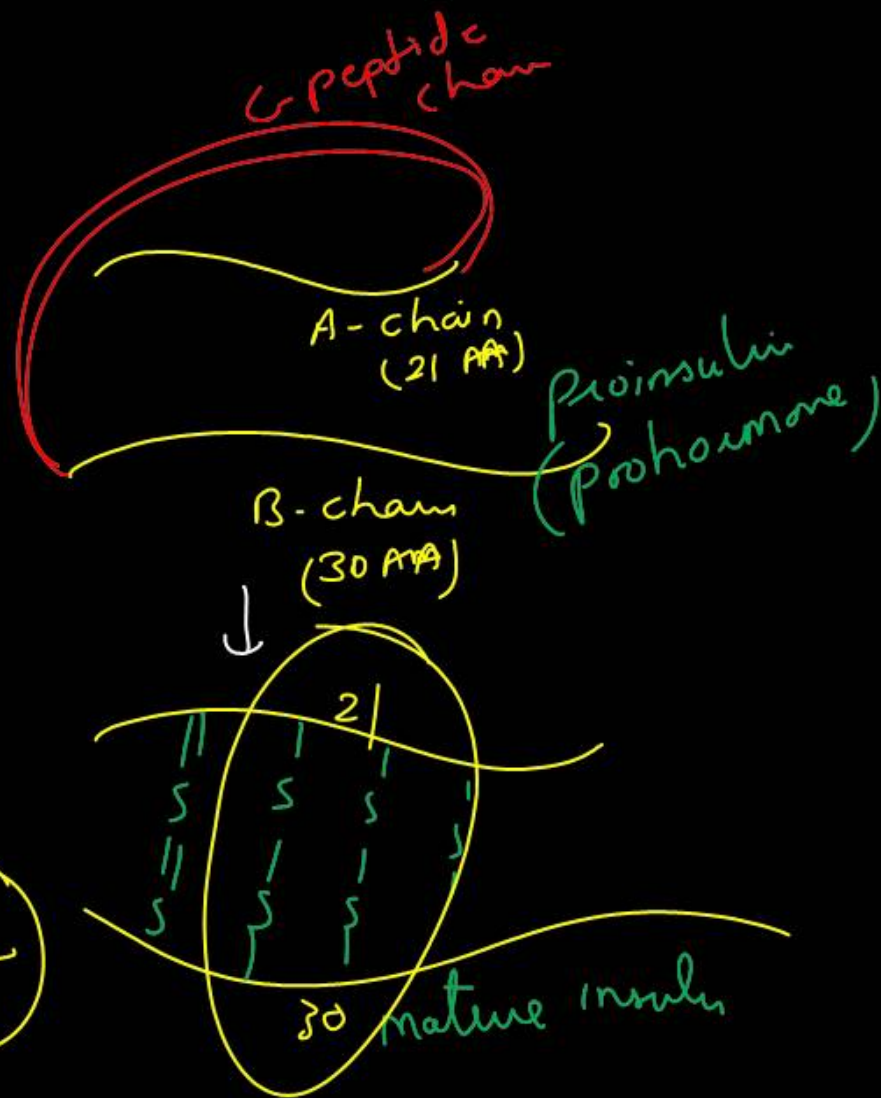 C-peptide
chain
A-chain
(21 AA)
Proinsulin
(prohormone)
B-chain
(30 AA)
21
S S S S
S S S
30
mature insulin